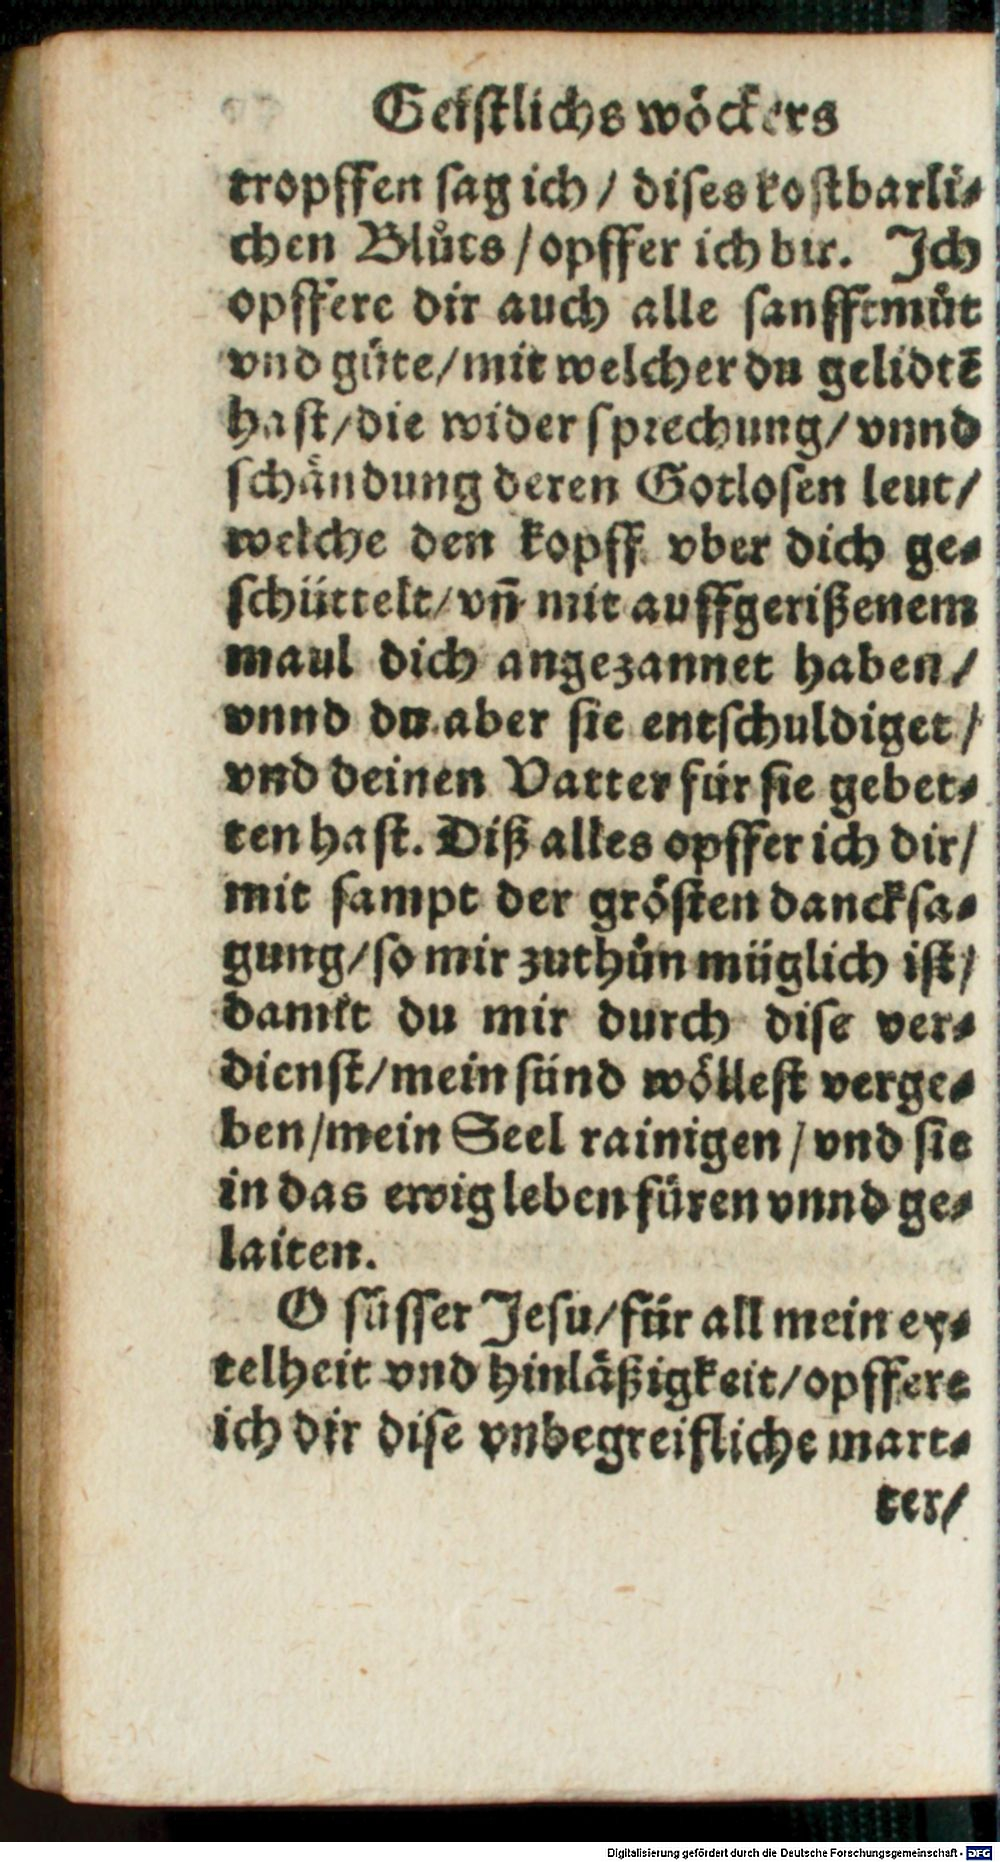 Geistlichs wöckers
tropffen sag ich / dises kostbarli⸗
chen Blůts / opffer ich dir. Ich
opffere dir auch alle sanfftmůt
vnd güte / mit welcher du gelidtē
hast / die widersprechung / vnnd
schändung deren Gotlosen leut /
welche den kopff vber dich ge⸗
schüttelt / vñ mit auffgerißenem
maul dich angezannet haben /
vnnd du aber sie entschuldiget /
vnd deinen Vatter für sie gebet⸗
ten hast. Diß alles opffer ich dir /
mit sampt der grösten dancksa⸗
gung / so mir zuthůn müglich ist /
damit du mir durch dise ver⸗
dienst / mein sünd wöllest verge⸗
ben / mein Seel rainigen / vnd sie
in das ewig leben füren vnnd ge⸗
laiten.
O süsser Jesu / für all mein ey⸗
telheit vnd hinläßigkeit / opffere
ich dir dise vnbegreifliche mart⸗
ter /
Digitalisierung gefördert durch die Deutsche Forschungsgemeinschaft - DFG